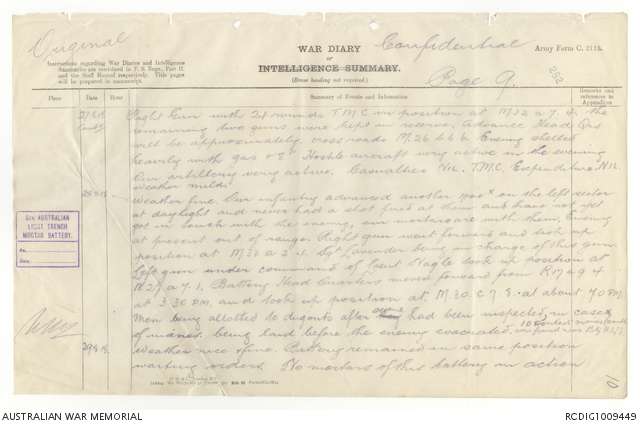 Original
WAR DIARY
or
INTELLIGENCE SUMMARY.
(Erase heading not required.)
Confidential
Page 9.
Army Form C. 2118.
252
Instructions regarding War Diaries and Intelligence
Summaries are contained in F. S. Regs., Part II.
and the Staff Manual respectively. Title pages
will be prepared in manuscript.
Place
Date
Hour
Summary of Events and Information
Remarks and
references to
Appendices
27/8/18 Right Gun with 24 rounds T.M.C in position at M.32 a 7.3. the
Contd remaining two guns were kept in reserve. Advance Head Qrs
will be approximately cross roads M.26 b.6.6. Enemy shelled
heavily with gas & Hostile aircraft very active in the evening
Our artillery very active. Casualties Nil. T.M.C. Expenditure Nil
weather mild.
28.8.18 Weather fine. Our infantry advanced another on the left sector
at daylight and never had a shot fired at them and have not yet
got in touch with the enemy, our mortars are with them. Enemy
at present out of range. Right gun went forward and took up
position at M.30 a 2.4. Sgt Lavender being in charge of this gun
Left gun under command of Lieut Nagle took up position at
a 7.1. Battery Head Quarters moved forward from R
at 3.30 P.M. and took up position at M.30.C.7.8. at about 7.0 P.M
Men being allotted to dugouts after had been inspected, in case
of mines being laid before the enemy evacuated.
29.8.18 Weather nice & fine. Battery remained in same position
waiting orders. No mortars of this battery in action
5TH AUSTRALIAN
LIGHT TRENCH
MORTAR BATTERY.
No.
Date
10
AUSTRALIAN WAR MEMORIAL
RCDIG1009449